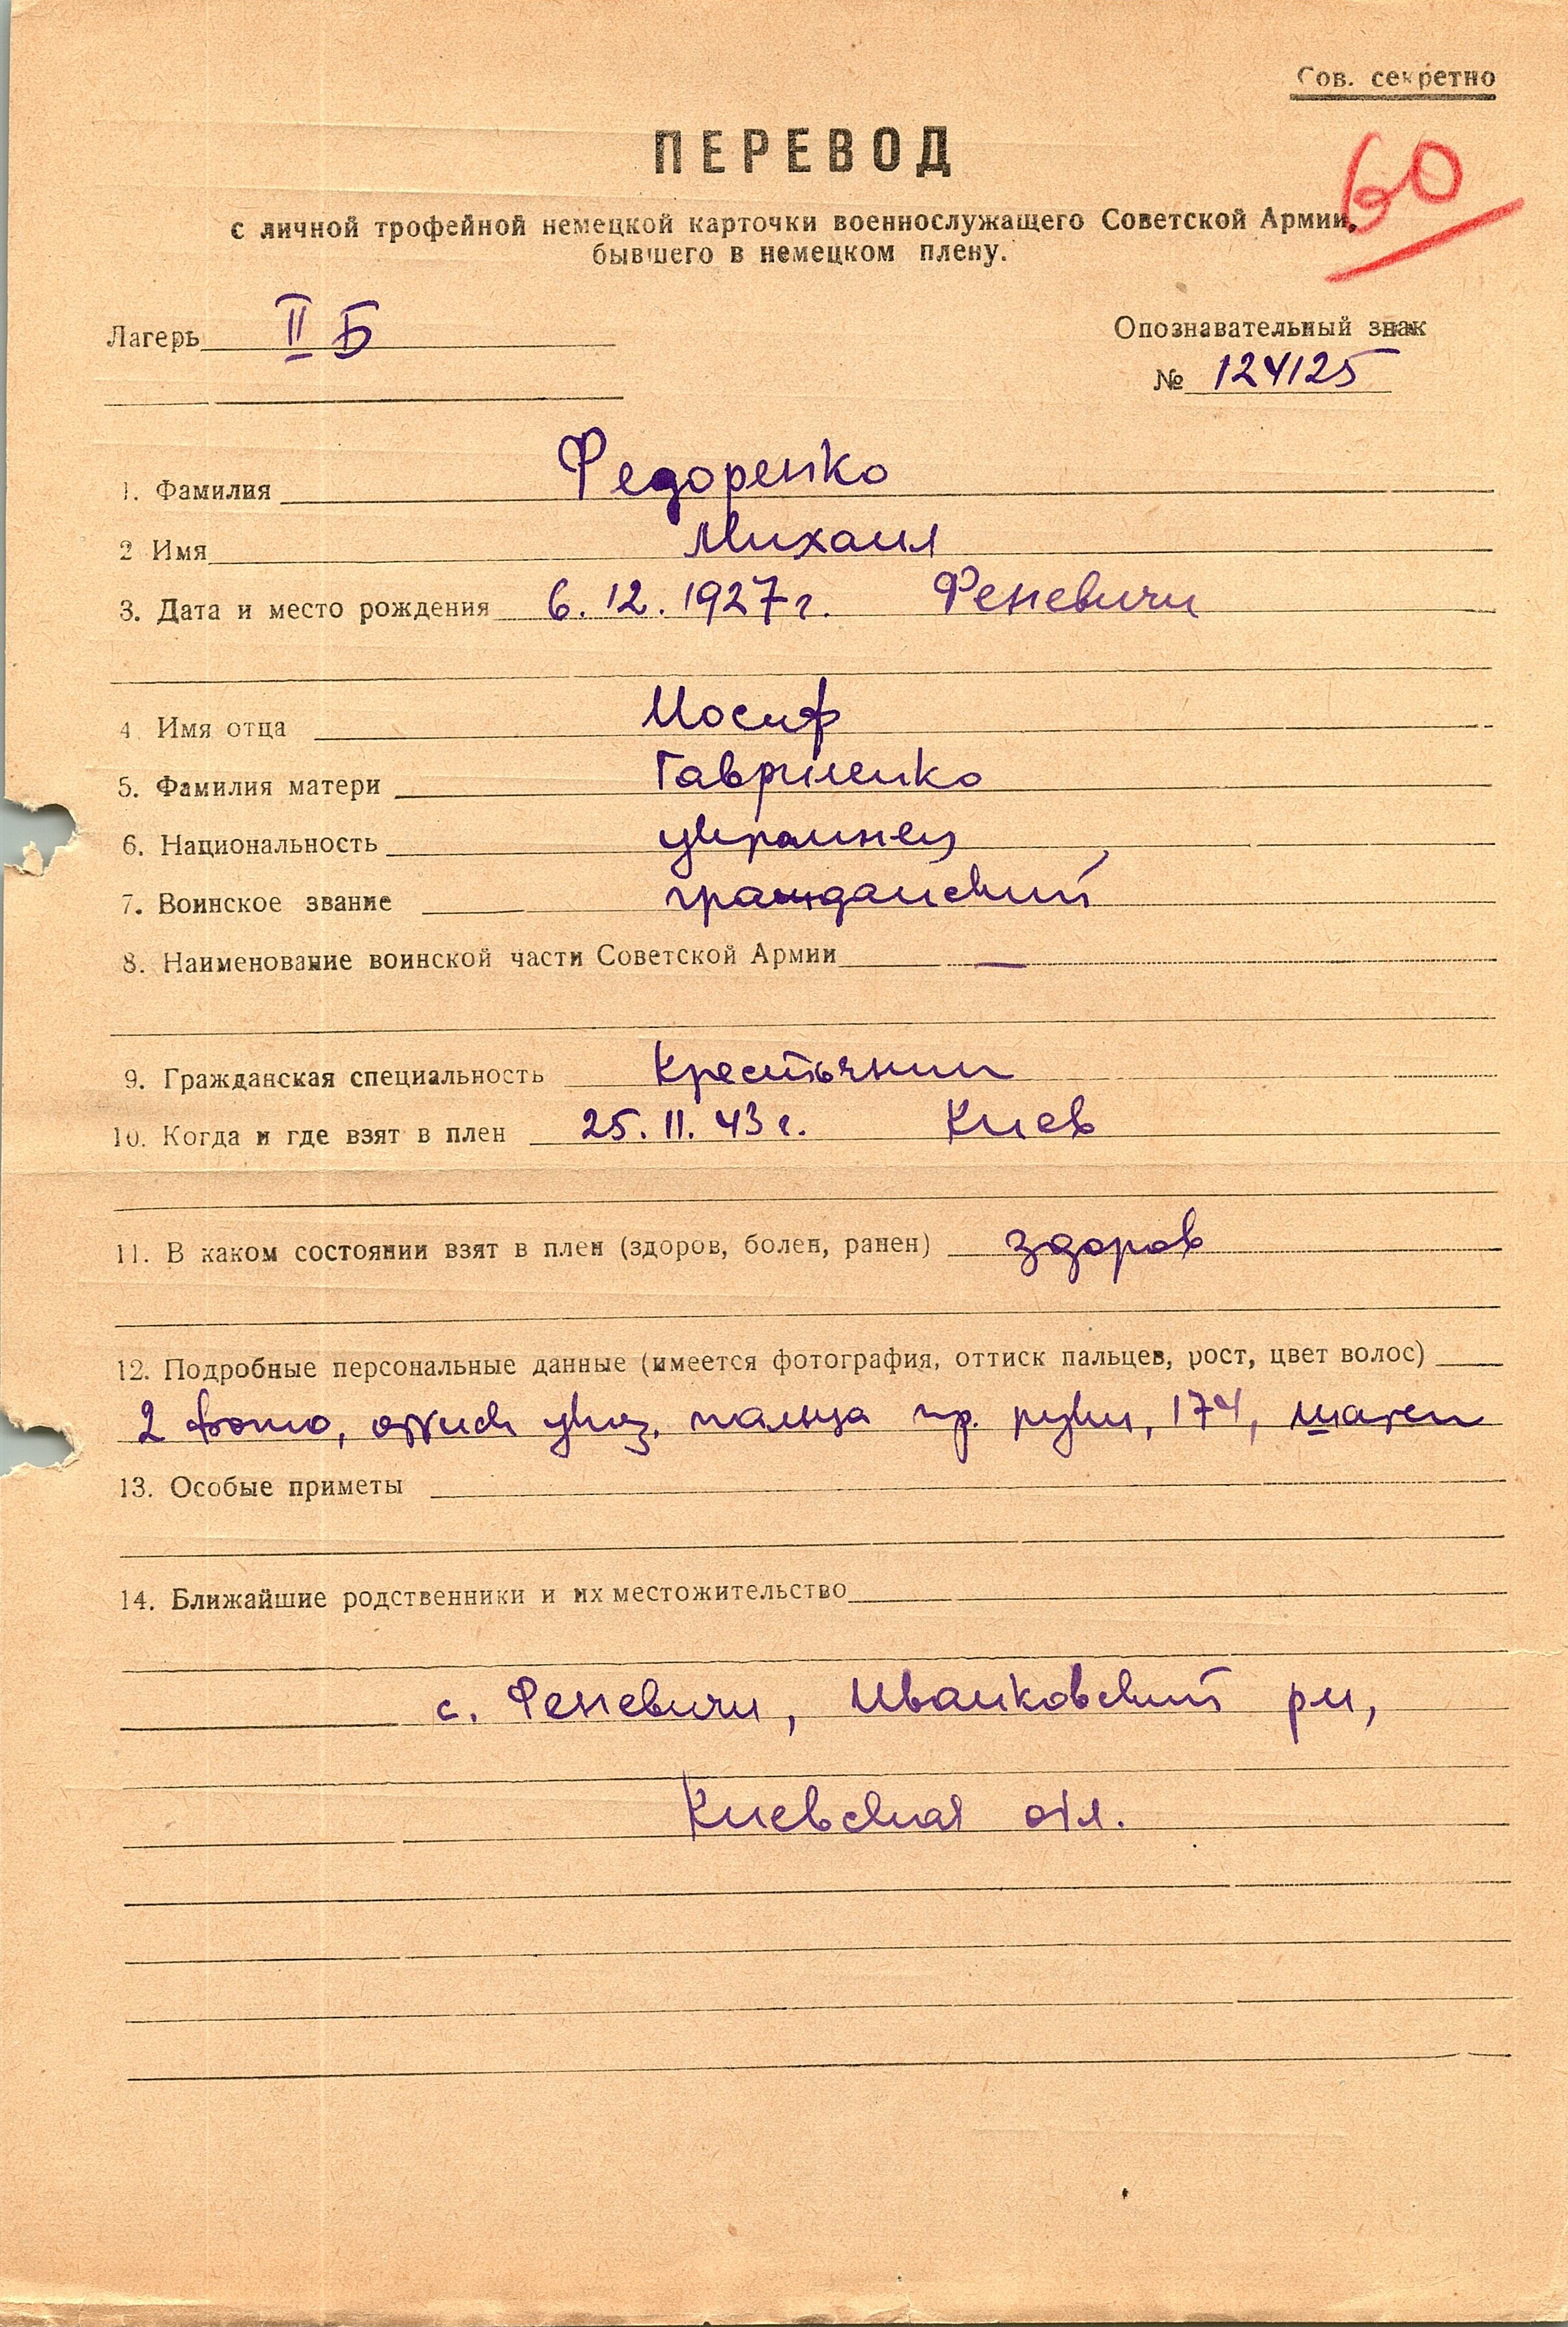 Сов. секретно
60
ПЕРЕВОД
с личной трофейной немецкой карточки военнослужащего Советской Армии,
бывшего в немецком плену.
Лагерь II Б
Опознавательный знак
№ 124125
1. Фамилия Федоренко
2 Имя Михаил
3. Дата и место рождения 6.12.1927 г. Феневичи
4 Имя отца Иосиф
5. Фамилия матери Гавриленко
6. Национальность украинец
7. Воинское звание гражданский
8. Наименование воинской части Советской Армии —
9. Гражданская специальность крестьянин
10. Когда и где взят в плен 25.11.43 г. Киев
11. В каком состоянии взят в плен (здоров, болен, ранен) здоров
12. Подробные персональные данные (имеется фотография, оттиск пальцев, рост, цвет волос)
2 фото, оттиск указ. пальца пр. руки, 174, шатен
13. Особые приметы
14. Ближайшие родственники и их местожительство
с. Феневичи, Иванковский рн,
Киевская обл.